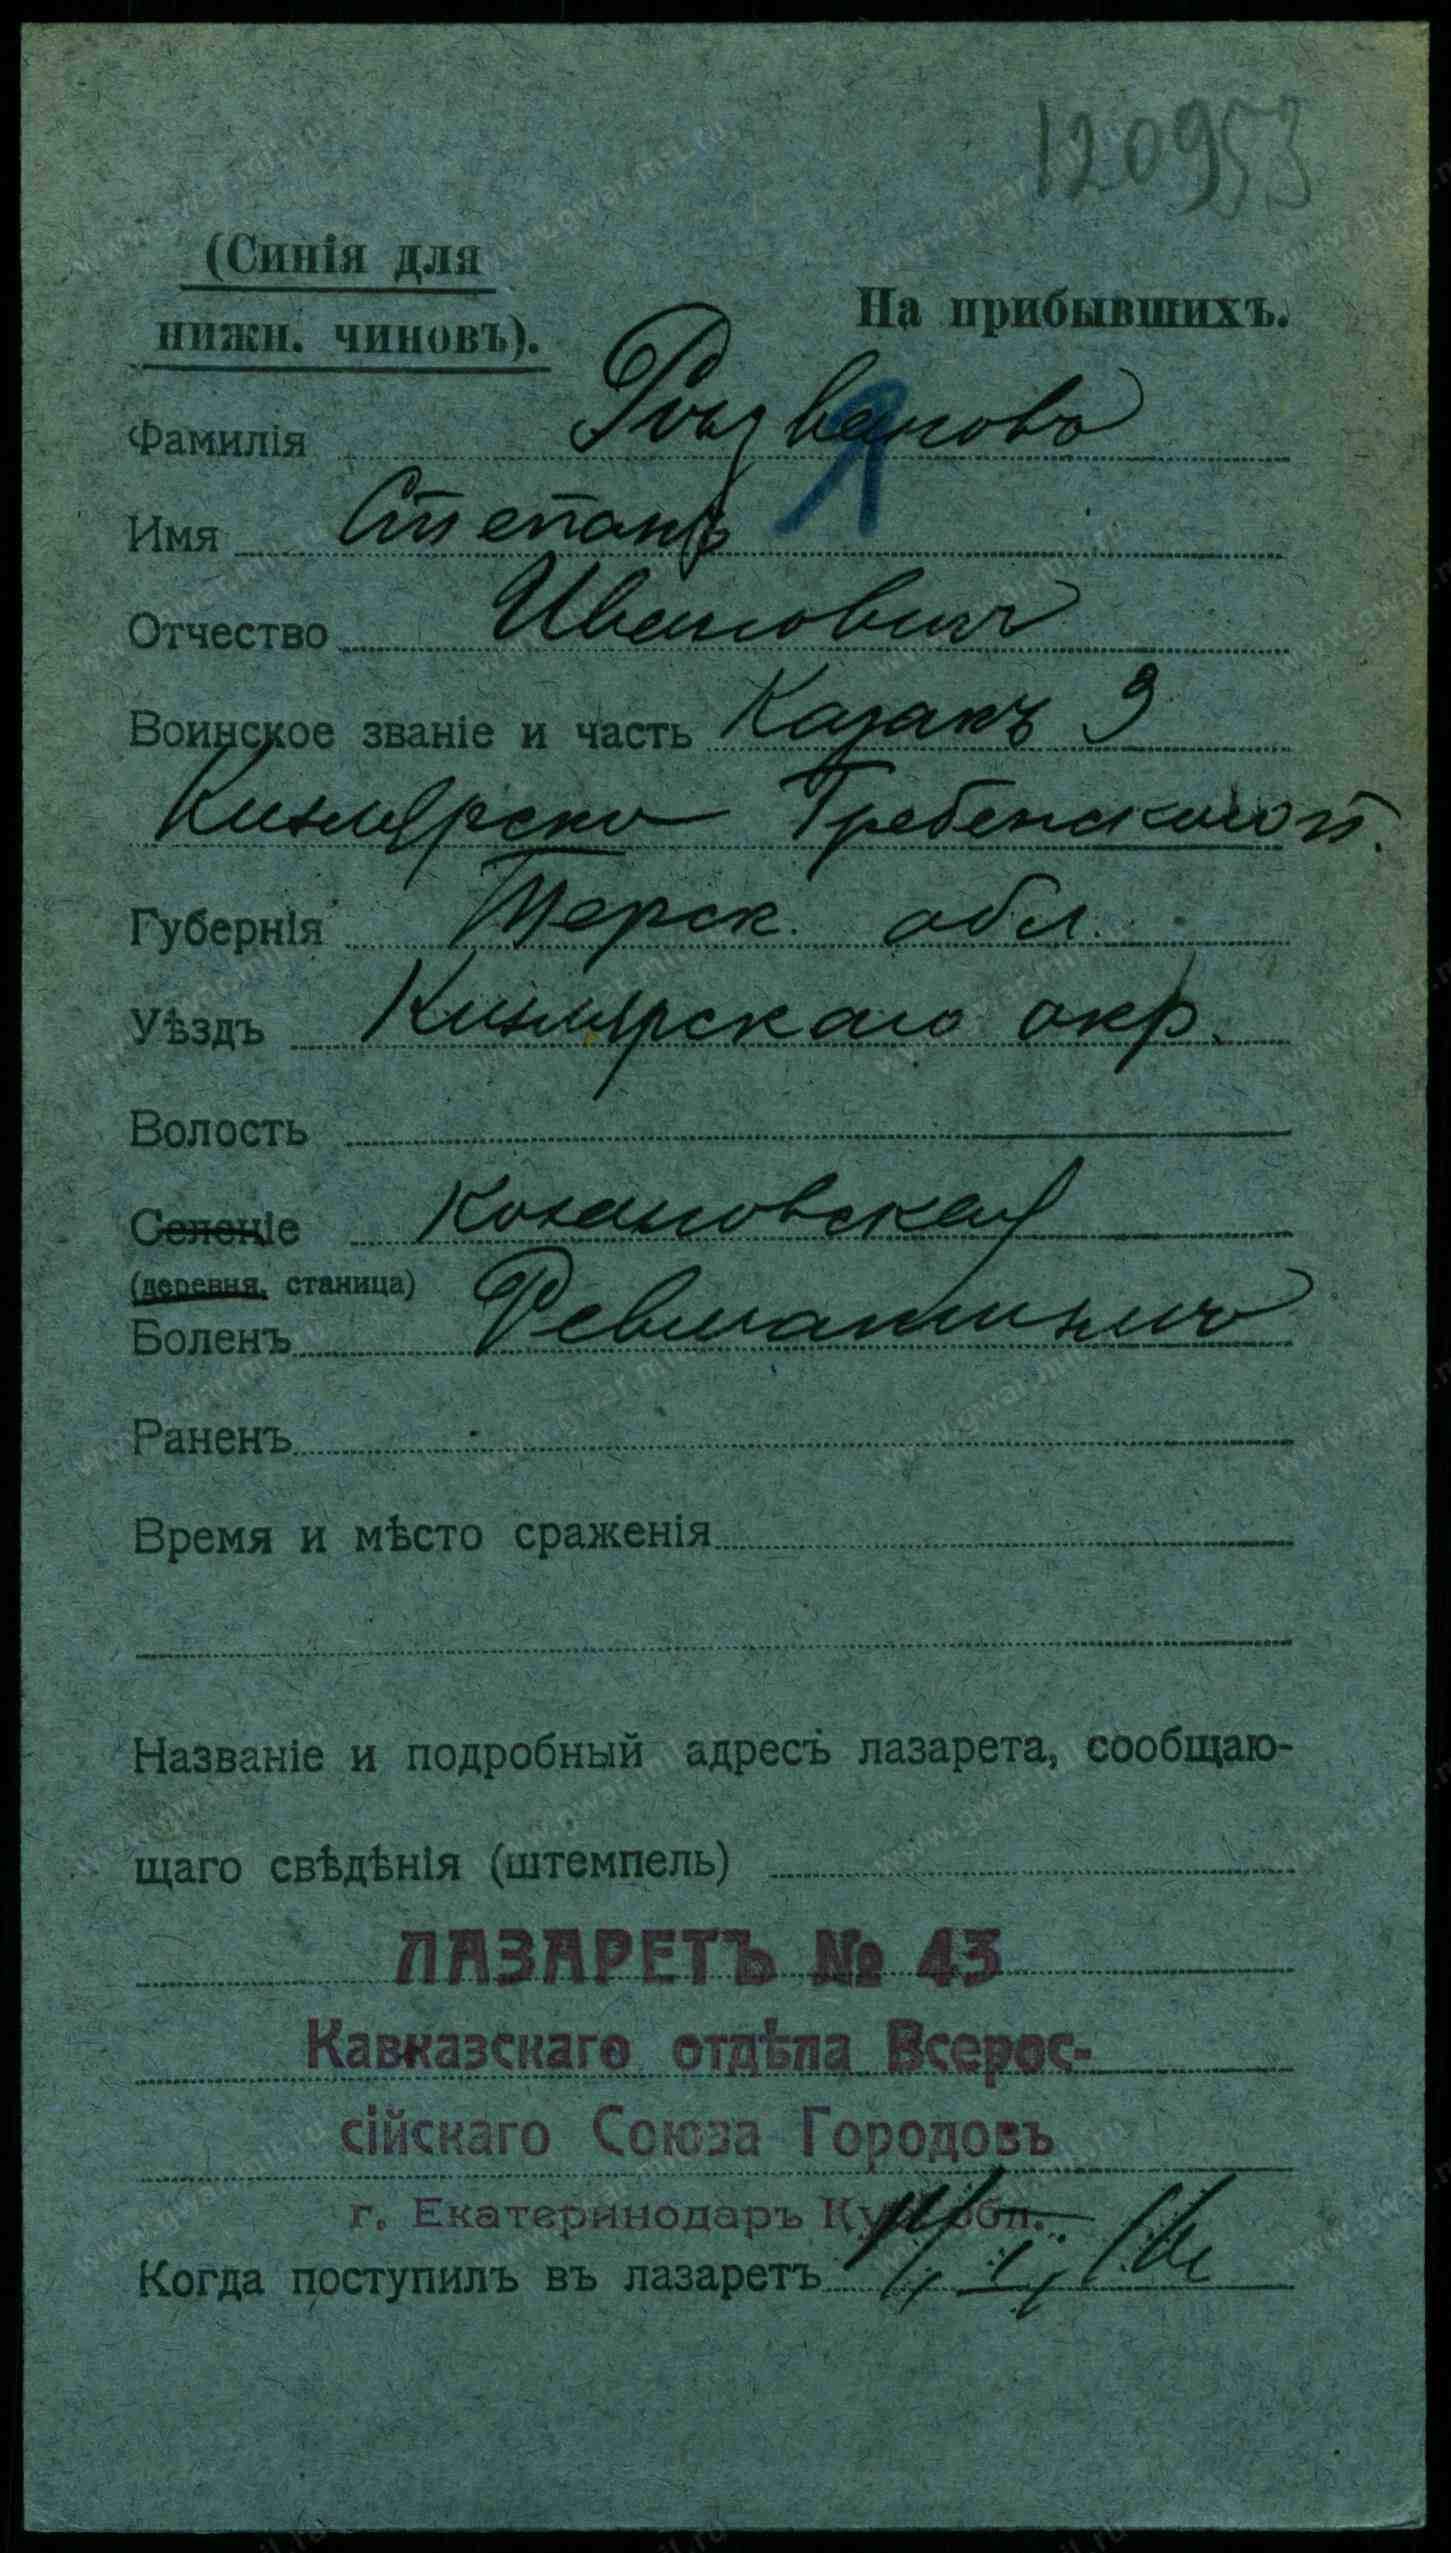 120953
(Синія для
нижн. чиновъ).
На прибывшихъ.
Фамилія
Я
Имя Степанъ
Отчество Иванович
Воинское званіе и часть Казакъ 3
Кизлярско Гребенского п.
Губернія Терск. обл.
Уѣздъ Кизлярскаго окр.
Волость
Селеніе
(деревня, станица)
Боленъ Ревматизм
Раненъ
Время и мѣсто сраженія
Названіе и подробный адресъ лазарета, сообщаю-
щаго свѣдѣнія (штемпель)
ЛАЗАРЕТЪ № 43
Кавказскаго отдѣла Всерос-
сійскаго Союза Городовъ
г. Екатеринодаръ Куб. обл.
Когда поступилъ въ лазаретъ